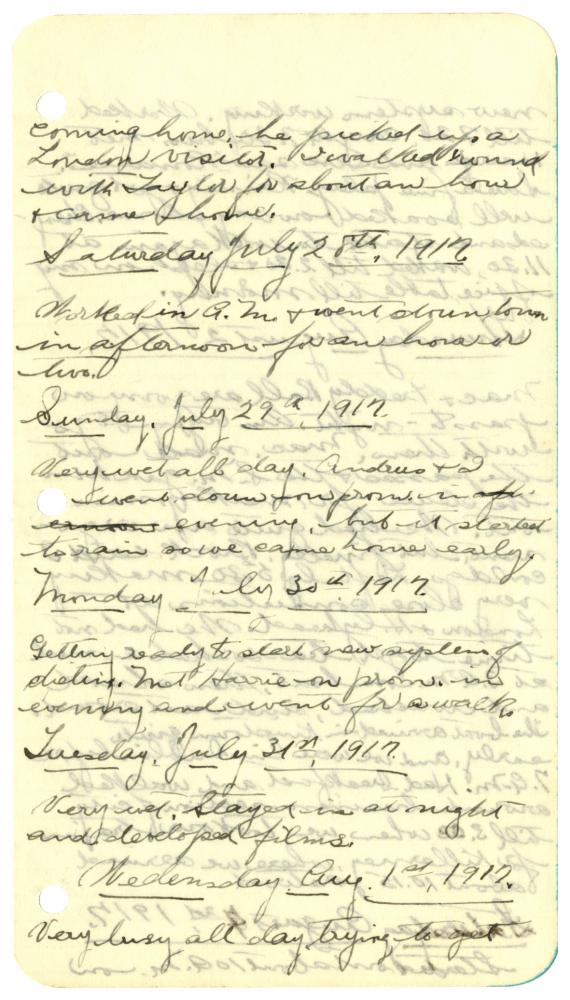 coming home, he picked up a
London visitor. I walked 'round
with Taylor for about an hour
& came home.
Saturday July 28th, 1917.
Worked in A.M. & went down town
in afternoon for an hour or
two.
Sunday, July 29th, 1917.
Very wet all day. Andrus & I
went down on prom. in aft-
ernoon evening, but it started
to rain so we came home early.
Monday July 30th 1917.
Getting ready to start new system of
dieting. Met Harrie on prom. in
evening and went for a walk.
Tuesday, July 31st, 1917.
Very wet. Stayed in at night
and developed films.
Wedensday Aug. 1st, 1917.
Very busy all day trying to get